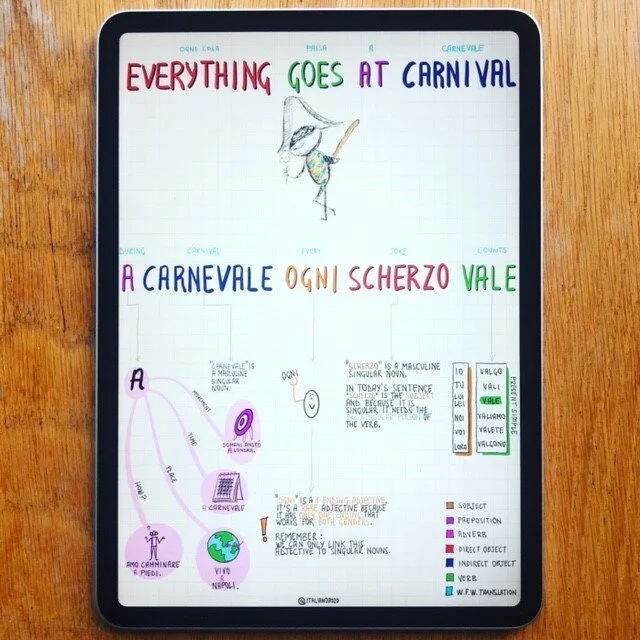 OGNI COSA PASSA A CARNEVALE
EVERYTHING GOES AT CARNIVAL
DURING CARNIVAL EVERY JOKE COUNTS
A CARNEVALE OGNI SCHERZO VALE
A
MOVEMENT
DOMANI ANDRÒ
A LONDRA.
TIME
A CARNEVALE
PLACE
VIVO
A
NAPOLI.
HOW?
AMO CAMMINARE
A PIEDI.
"CARNEVALE" IS
A MASCULINE
SINGULAR
NOUN.
OGNI
"OGNI" IS A 1 ENDING ADJECTIVE.
IT'S A RARE ADJECTIVE BECAUSE
IT HAS ONLY ONE ENDING THAT
WORKS FOR BOTH GENDERS.
!
REMEMBER:
WE CAN ONLY LINK THIS
ADJECTIVE TO SINGULAR NOUNS.
"SCHERZO" IS A MASCULINE
SINGULAR NOUN.
IN TODAY'S SENTENCE
"SCHERZO" IS THE SUBJECT
AND BECAUSE IT IS
SINGULAR IT NEEDS THE
3RD SINGULAR PERSON OF
THE VERB.
IO VALGO
TU VALI
LUI
LEI VALE
NOI VALIAMO
VOI VALETE
LORO VALGONO
PRESENT SIMPLE
SUBJECT
PREPOSITION
ADVERB
DIRECT OBJECT
INDIRECT OBJECT
VERB
W.F.W. TRANSLATION